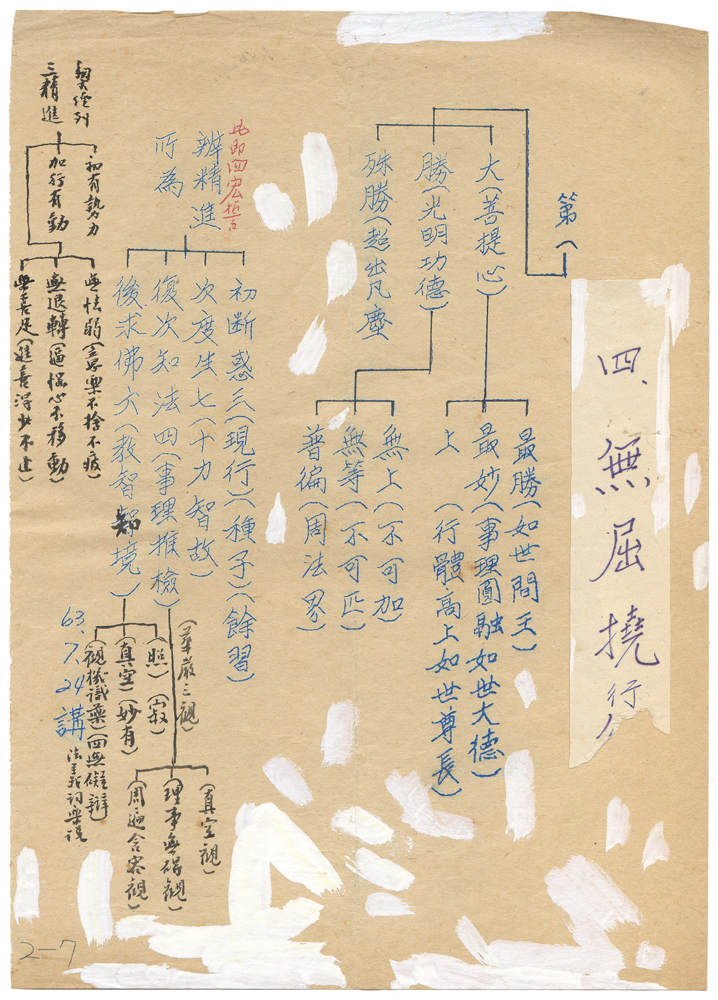 四、無屈撓行
第一
大(菩提心)
勝(光明功德)
殊勝(超出凡塵
最勝(如世間王)
最妙(事理圓融如世大德)
上 (行體高上如世尊長)
無上(不可加)
無等(不可匹)
普徧(周法界)
此即四宏誓言
辨精進
所為
初断惑三(現行)(種子)(餘習)
次度生七(十力智故)
復次知法四(事理推檢)
後求佛六(教智智境)
(華嚴三觀)
(真空觀)
(理事無碍觀)
(周遍含容觀)
(照)(寂)
(真空)(妙有)
(觀機識藥)(四無礙辯)
法義詞樂說
63.7.24講
三精進
初有勢力
加行有動
無怯弱(
無退轉(逼惱心不移動)
無喜足(
2-7